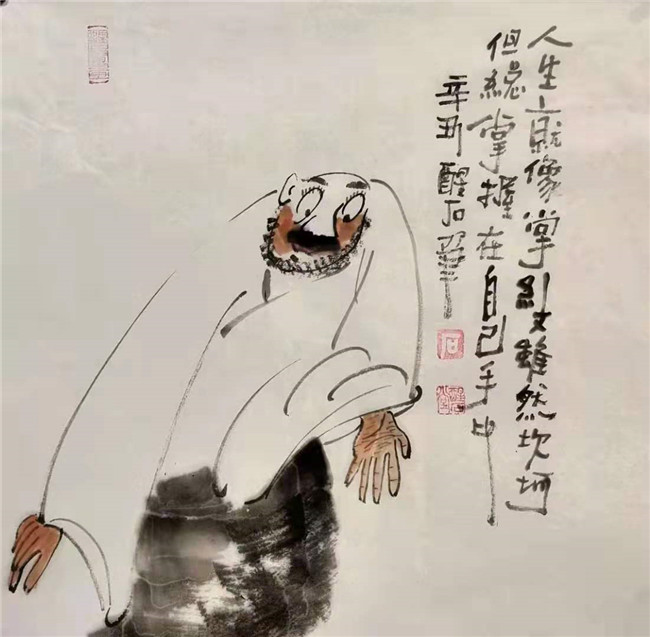 人生就像掌紋雖然坎坷
但總掌握在自己手中
辛丑醒石